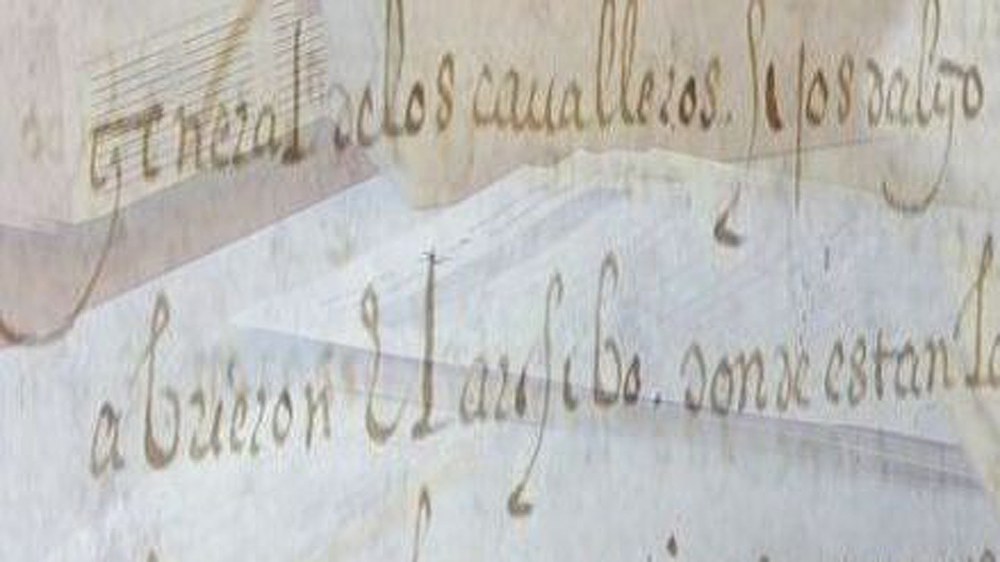 general delos cavalleros. hijos dalgo
abrieron el archibo. donde estan